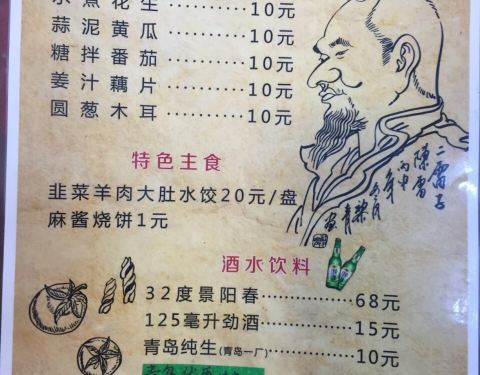 水煮花生············10元
蒜泥黄瓜············10元
糖拌番茄············10元
姜汁藕片············10元
圆葱木耳············10元
特色主食
韭菜羊肉大肚水饺20元/盘
麻酱烧饼1元
酒水饮料
32度景阳春············68元
125毫升劲酒············15元
青岛纯生(青岛一厂)············10元
二雷子
陈雷
丙申